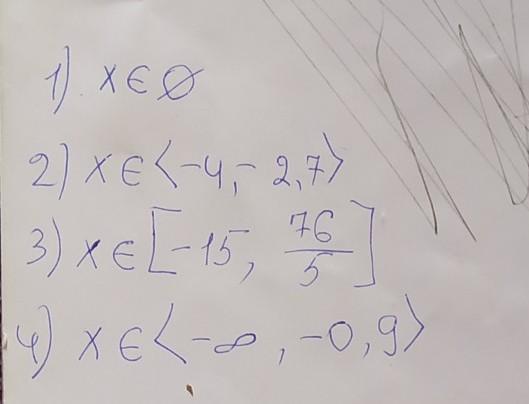 1) x ∈ ∅
2) x ∈ ⟨-4, -2,7⟩
3) x ∈ [-15, 76/5]
4) x ∈ ⟨-∞, -0,9⟩